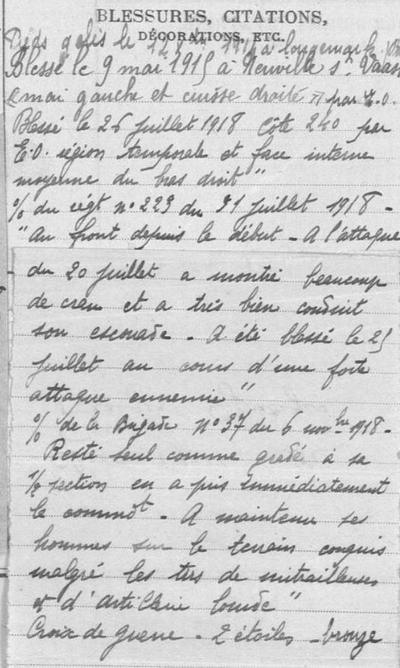 BLESSURES, CITATIONS,
DÉCORATIONS, ETC.
Pieds gelés le 12 1914 à Langemark
Blessé le 9 mai 1915 à Neuville St Vaast
(main gauche et cuisse droite) par E.O.
Blessé le 26 juillet 1918 Côte 240 par
E.O. région temporale et face interne
moyenne du bras droit"
% du régt n° 223 du 31 juillet 1918 -
"Au front depuis le début - A l'attaque
du 20 juillet a montré beaucoup
de cran et a très bien conduit
son escouade - A été blessé le 25
juillet au cours d'une forte
attaque ennemie"
% de la Brigade N° 37 du 6 novbre 1918 -
Resté seul comme gradé à sa
½ section en a pris immédiatement
le commdt - A maintenu ses
hommes sur le terrain conquis
malgré les tirs de mitrailleuses
et d'artillerie lourde"
Croix de guerre - 2 étoiles - bronze